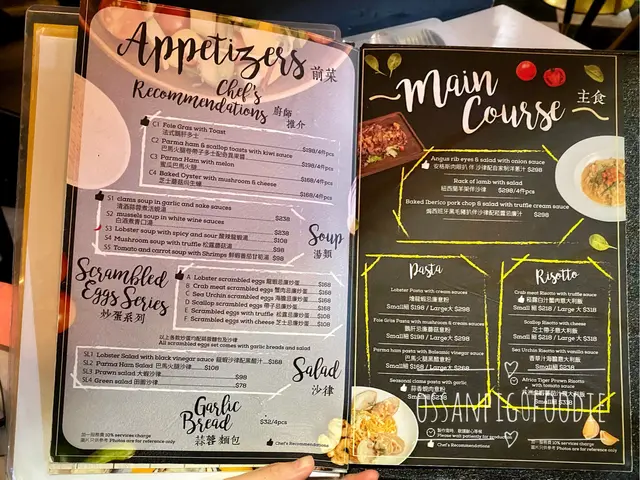 Appetizers 前菜
Chef's
Recommendations 廚師
推介
C1 Foie Gras with Toast
法式鵝肝多士 $198/4件
C2 Parma ham & scallop toasts with kiwi sauce
$198/4件
C3 Parma Ham with melon
蜜瓜巴馬火腿 $168/4件
C4 Baked Oyster with mushroom & cheese
$168/4件
S1 clams soup in garlic and sake sauces
$238
S2 mussels soup in white wine sauces
$238
S3 Lobster soup with spicy and sour $108
S4 Mushroom soup with truffle 松露蘑菇湯 $98
S5 Tomato and carrot soup with Shrimps 鮮蝦番茄甘筍湯 $98
Soup
湯類
Scrambled
Eggs Series
炒蛋系列
A Lobster scrambled eggs $168
B Crab meat scrambled eggs $168
C Sea Urchin scrambled eggs $168
D Scallop scrambled eggs $168
E Scrambled eggs with truffle $108
F Scrambled eggs with cheese $108
All scrambled eggs set comes with garlic breads and salad
SL1 Lobster Salad with black vinegar sauce $168
SL2 Parma Ham Salad 巴馬火腿沙律 $108
SL3 Prawn salad 大蝦沙律 $98
SL4 Green salad 田園沙律 $78
Salad
沙律
Garlic
Bread
蒜蓉麵包 $32/4pcs
加一服務費 10% services charge
圖片只供參考 Photos are for reference only
Chef's Recommendations
Main
Course 主食
Angus rib eyes & salad with onion sauce
$298
Rack of lamb with salad
紐西蘭羊架伴沙律 $298/4件
Baked Iberico pork chop & salad with truffle cream sauce
$298
Pasta
Lobster Pasta with cream sauces
Small細 $198 / Large大 $298
Foie Gras Pasta with mushroom & cream sauces
Small細 $198 / Large大 $298
Parma ham pasta with Balsamic vinegar sauce
Small細 $168 / Large大 $268
Seasoned clams pasta with garlic
蒜香蜆肉意粉
Small細
Risotto
Crab meat Risotto with truffle sauce
Small細 $218 / Large大 $318
Scallop Risotto with cheese
芝士帶子意大利飯
Small細 $218 / Large大 $318
Sea Urchin Risotto with vanilla sauce
Small細 $218 / Large大 $318
Africa Tiger Prawn Risotto
with tomato sauce
Small細 $238
OSSANPIGOFOODIE
Please wait patiently for production
Chef's Recommendations
加一服務費 10% services charge
圖片只供參考 Photos are for reference only